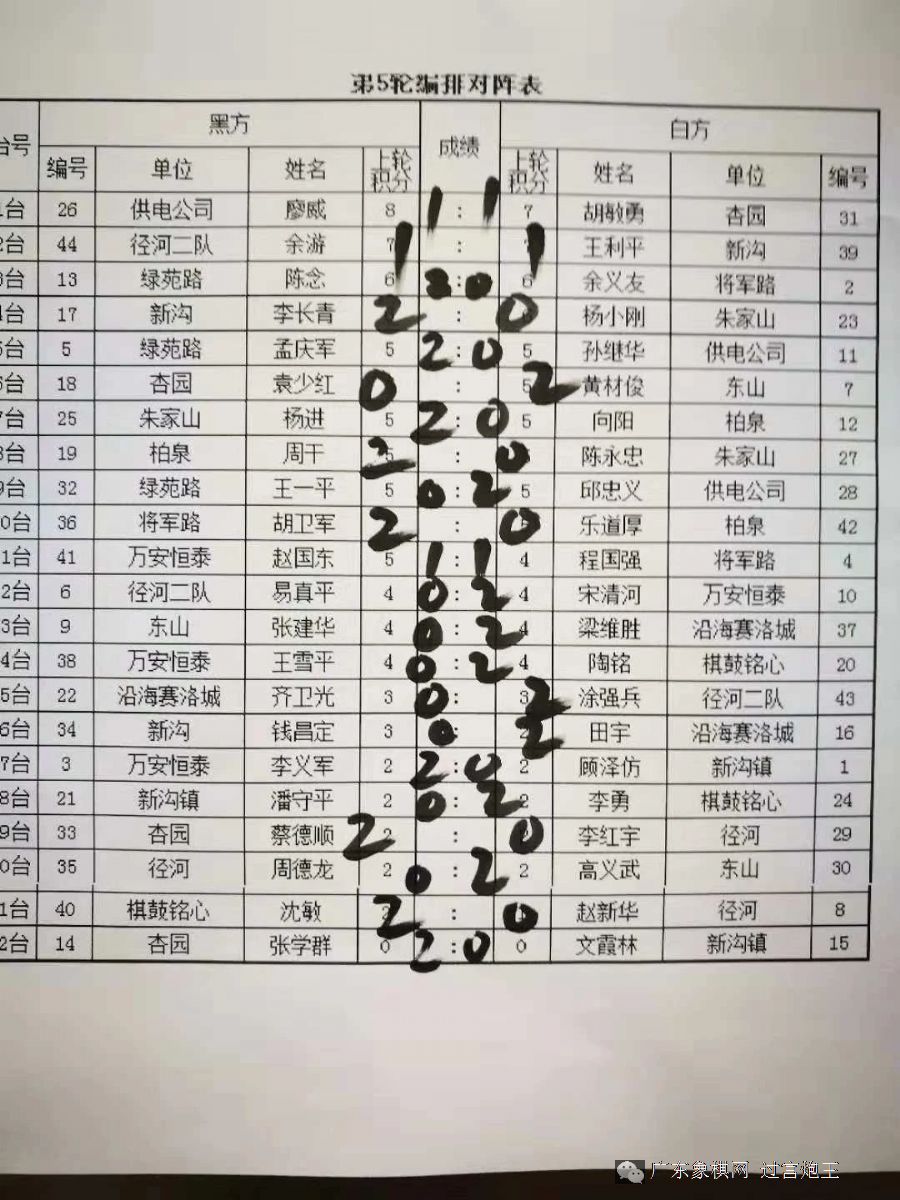 第5轮编排对阵表
台号 黑方 成绩 白方
编号 单位 姓名 上轮积分 上轮积分 姓名 单位 编号
1台 26 供电公司 廖威 8 1 : 1 7 胡敏勇 杏园 31
2台 44 径河二队 余游 7 1 : 1 王利平 新沟 39
3台 13 绿苑路 陈念 6 2 : 0 6 余义友 将军路 2
4台 17 新沟 李长青 2 : 0 杨小刚 朱家山 23
5台 5 绿苑路 孟庆军 5 2 : 0 5 孙继华 供电公司 11
6台 18 杏园 袁少红 0 : 2 5 黄材俊 东山 7
7台 25 朱家山 杨进 5 2 : 0 5 向阳 柏泉 12
8台 19 柏泉 周干 5 2 : 0 陈永忠 朱家山 27
9台 32 绿苑路 王一平 5 0 : 2 5 邱忠义 供电公司 28
0台 36 将军路 胡卫军 2 : 0 乐道厚 柏泉 42
1台 41 万安恒泰 赵国东 5 1 : 1 4 程国强 将军路 4
2台 6 径河二队 易真平 4 0 : 2 4 宋清河 万安恒泰 10
3台 9 东山 张建华 4 0 : 2 4 梁维胜 沿海赛洛城 37
4台 38 万安恒泰 王雪平 4 0 : 2 4 陶铭 棋鼓铭心 20
5台 22 沿海赛洛城 齐卫光 3 0 : 2 3 涂强兵 径河二队 43
6台 34 新沟 钱昌定 3 0 : 2 田宇 沿海赛洛城 16
7台 3 万安恒泰 李义军 2 2 : 0 2 顾泽仿 新沟镇 1
8台 21 新沟镇 潘守平 2 0 : 2 2 李勇 棋鼓铭心 24
9台 33 杏园 蔡德顺 2 2 : 0 李红宇 径河 29
0台 35 径河 周德龙 2 0 : 2 2 高义武 东山 30
1台 40 棋鼓铭心 沈敏 2 : 0 赵新华 径河 8
2台 14 杏园 张学群 0 2 : 0 0 文霞林 新沟镇 15
广东象棋网 过宫炮王